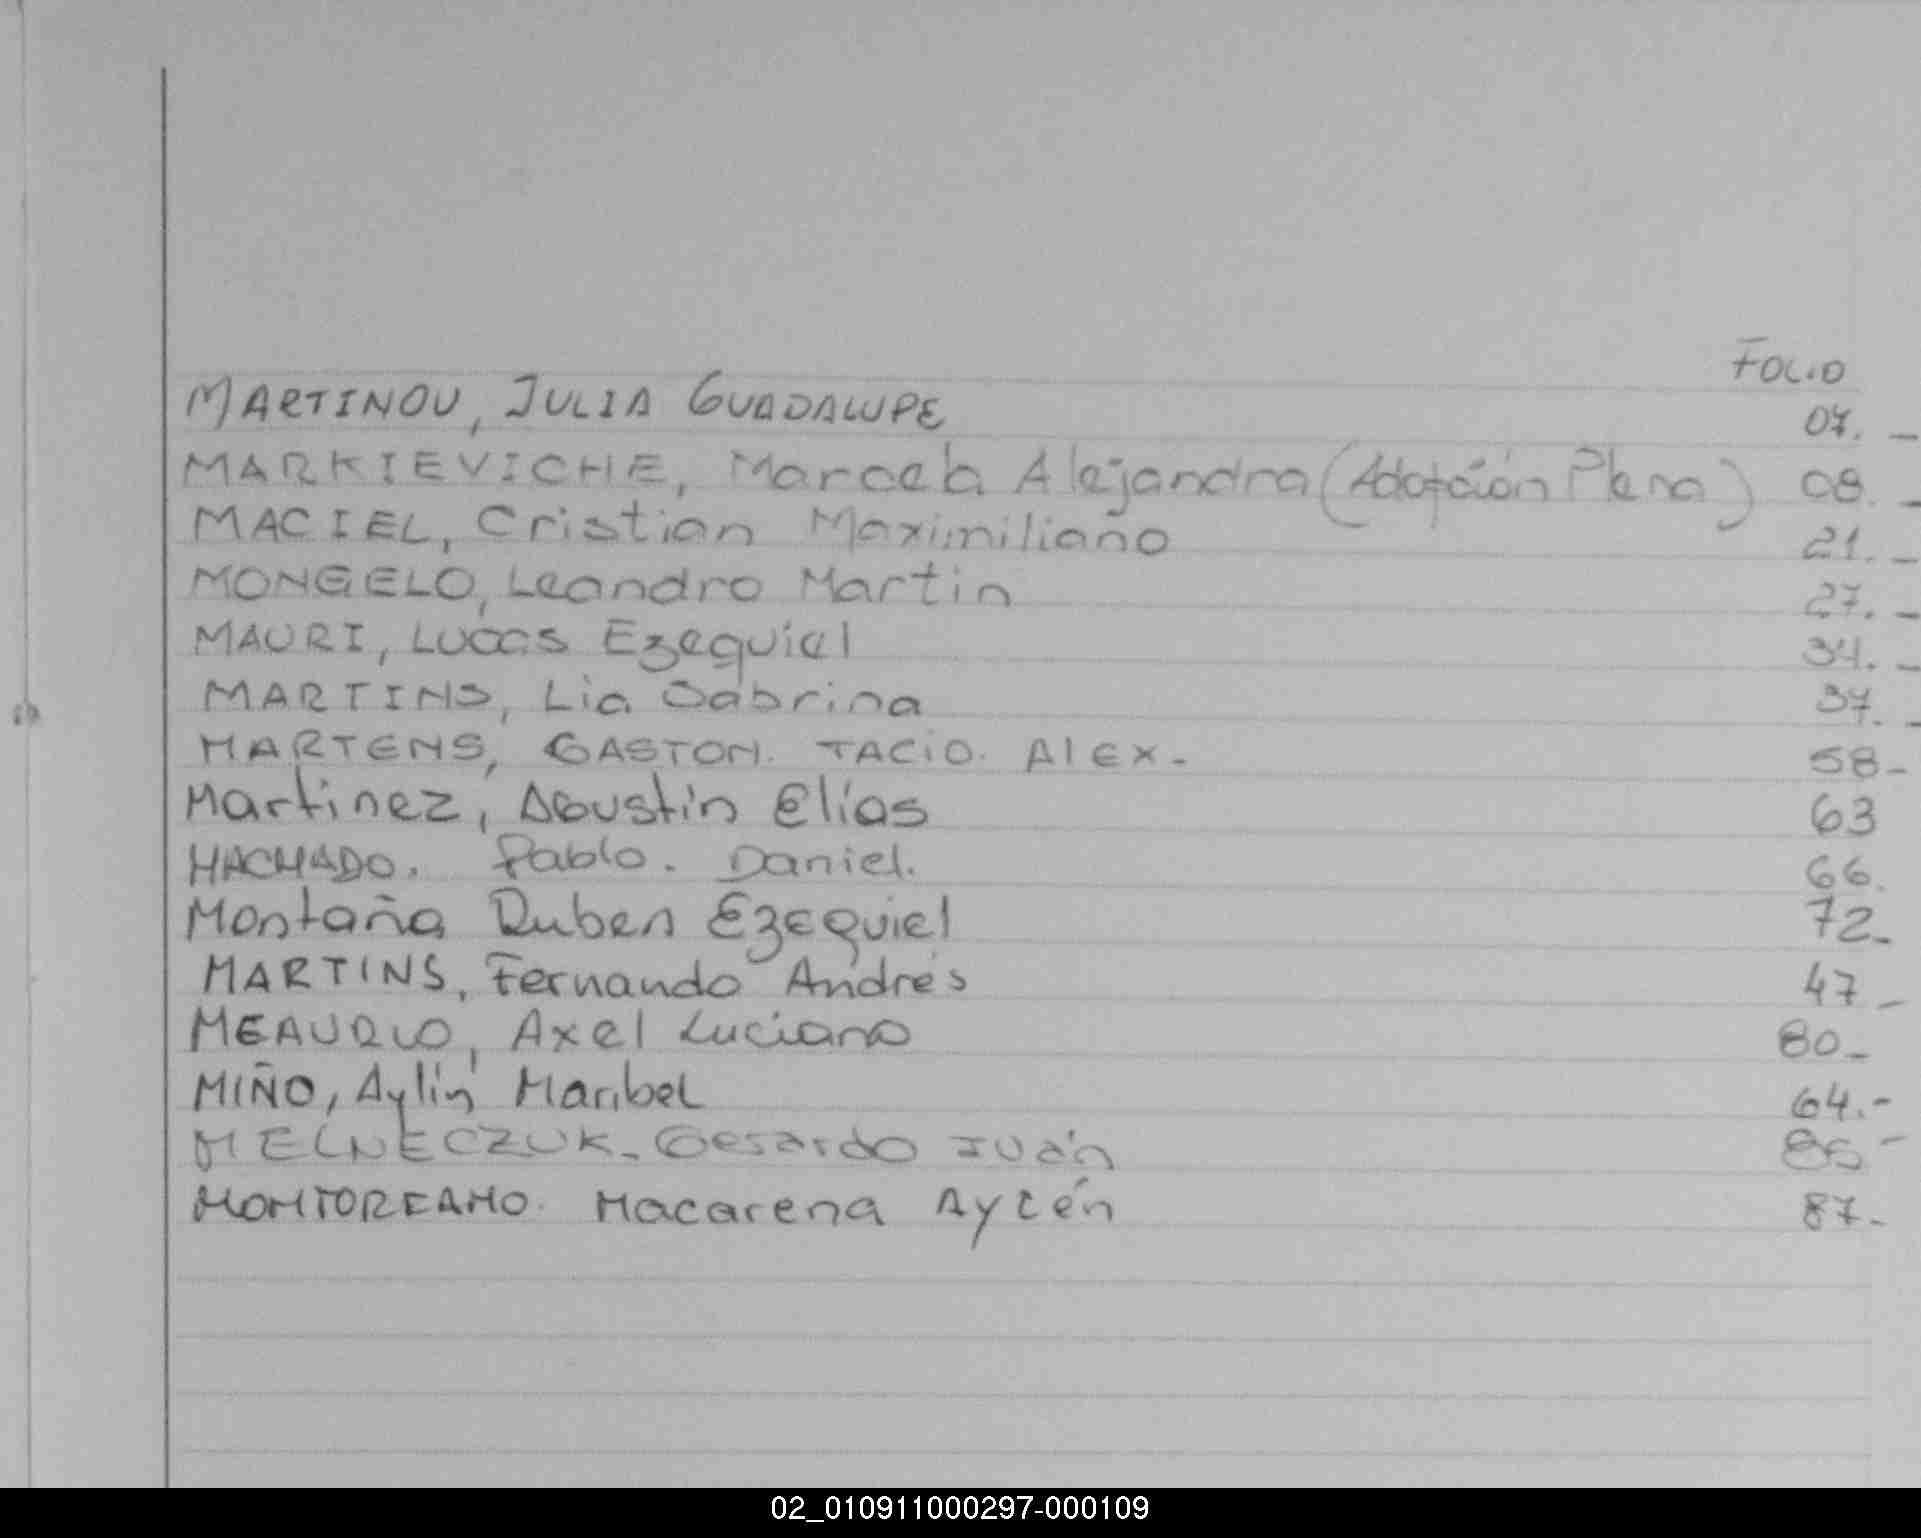 FOLIO
MARTINOU, JULIA GUADALUPE 07. -
MARKIEVICHE, Marcela Alejandra (Adopción Plena) 08. -
MACIEL, Cristian Maximiliano 21. -
MONGELO, Leandro Martin 27. -
MAURI, Lucas Ezequiel 34. -
MARTINS, Lia Sabrina 37. -
MARTENS, GASTON. TACIO. Alex. - 58-
Martinez, Agustín Elías 63
MACHADO. Pablo. Daniel. 66.
Montaña Ruben Ezequiel 72-
MARTINS, Fernando Andrés 47 -
MEAURIO, Axel Luciano 80-
MIÑO, Aylín Maribel 64.-
MELNECZUK- Gerardo Iván -
MONTOREANO. Macarena Aylén 87-
02_010911000297-000109